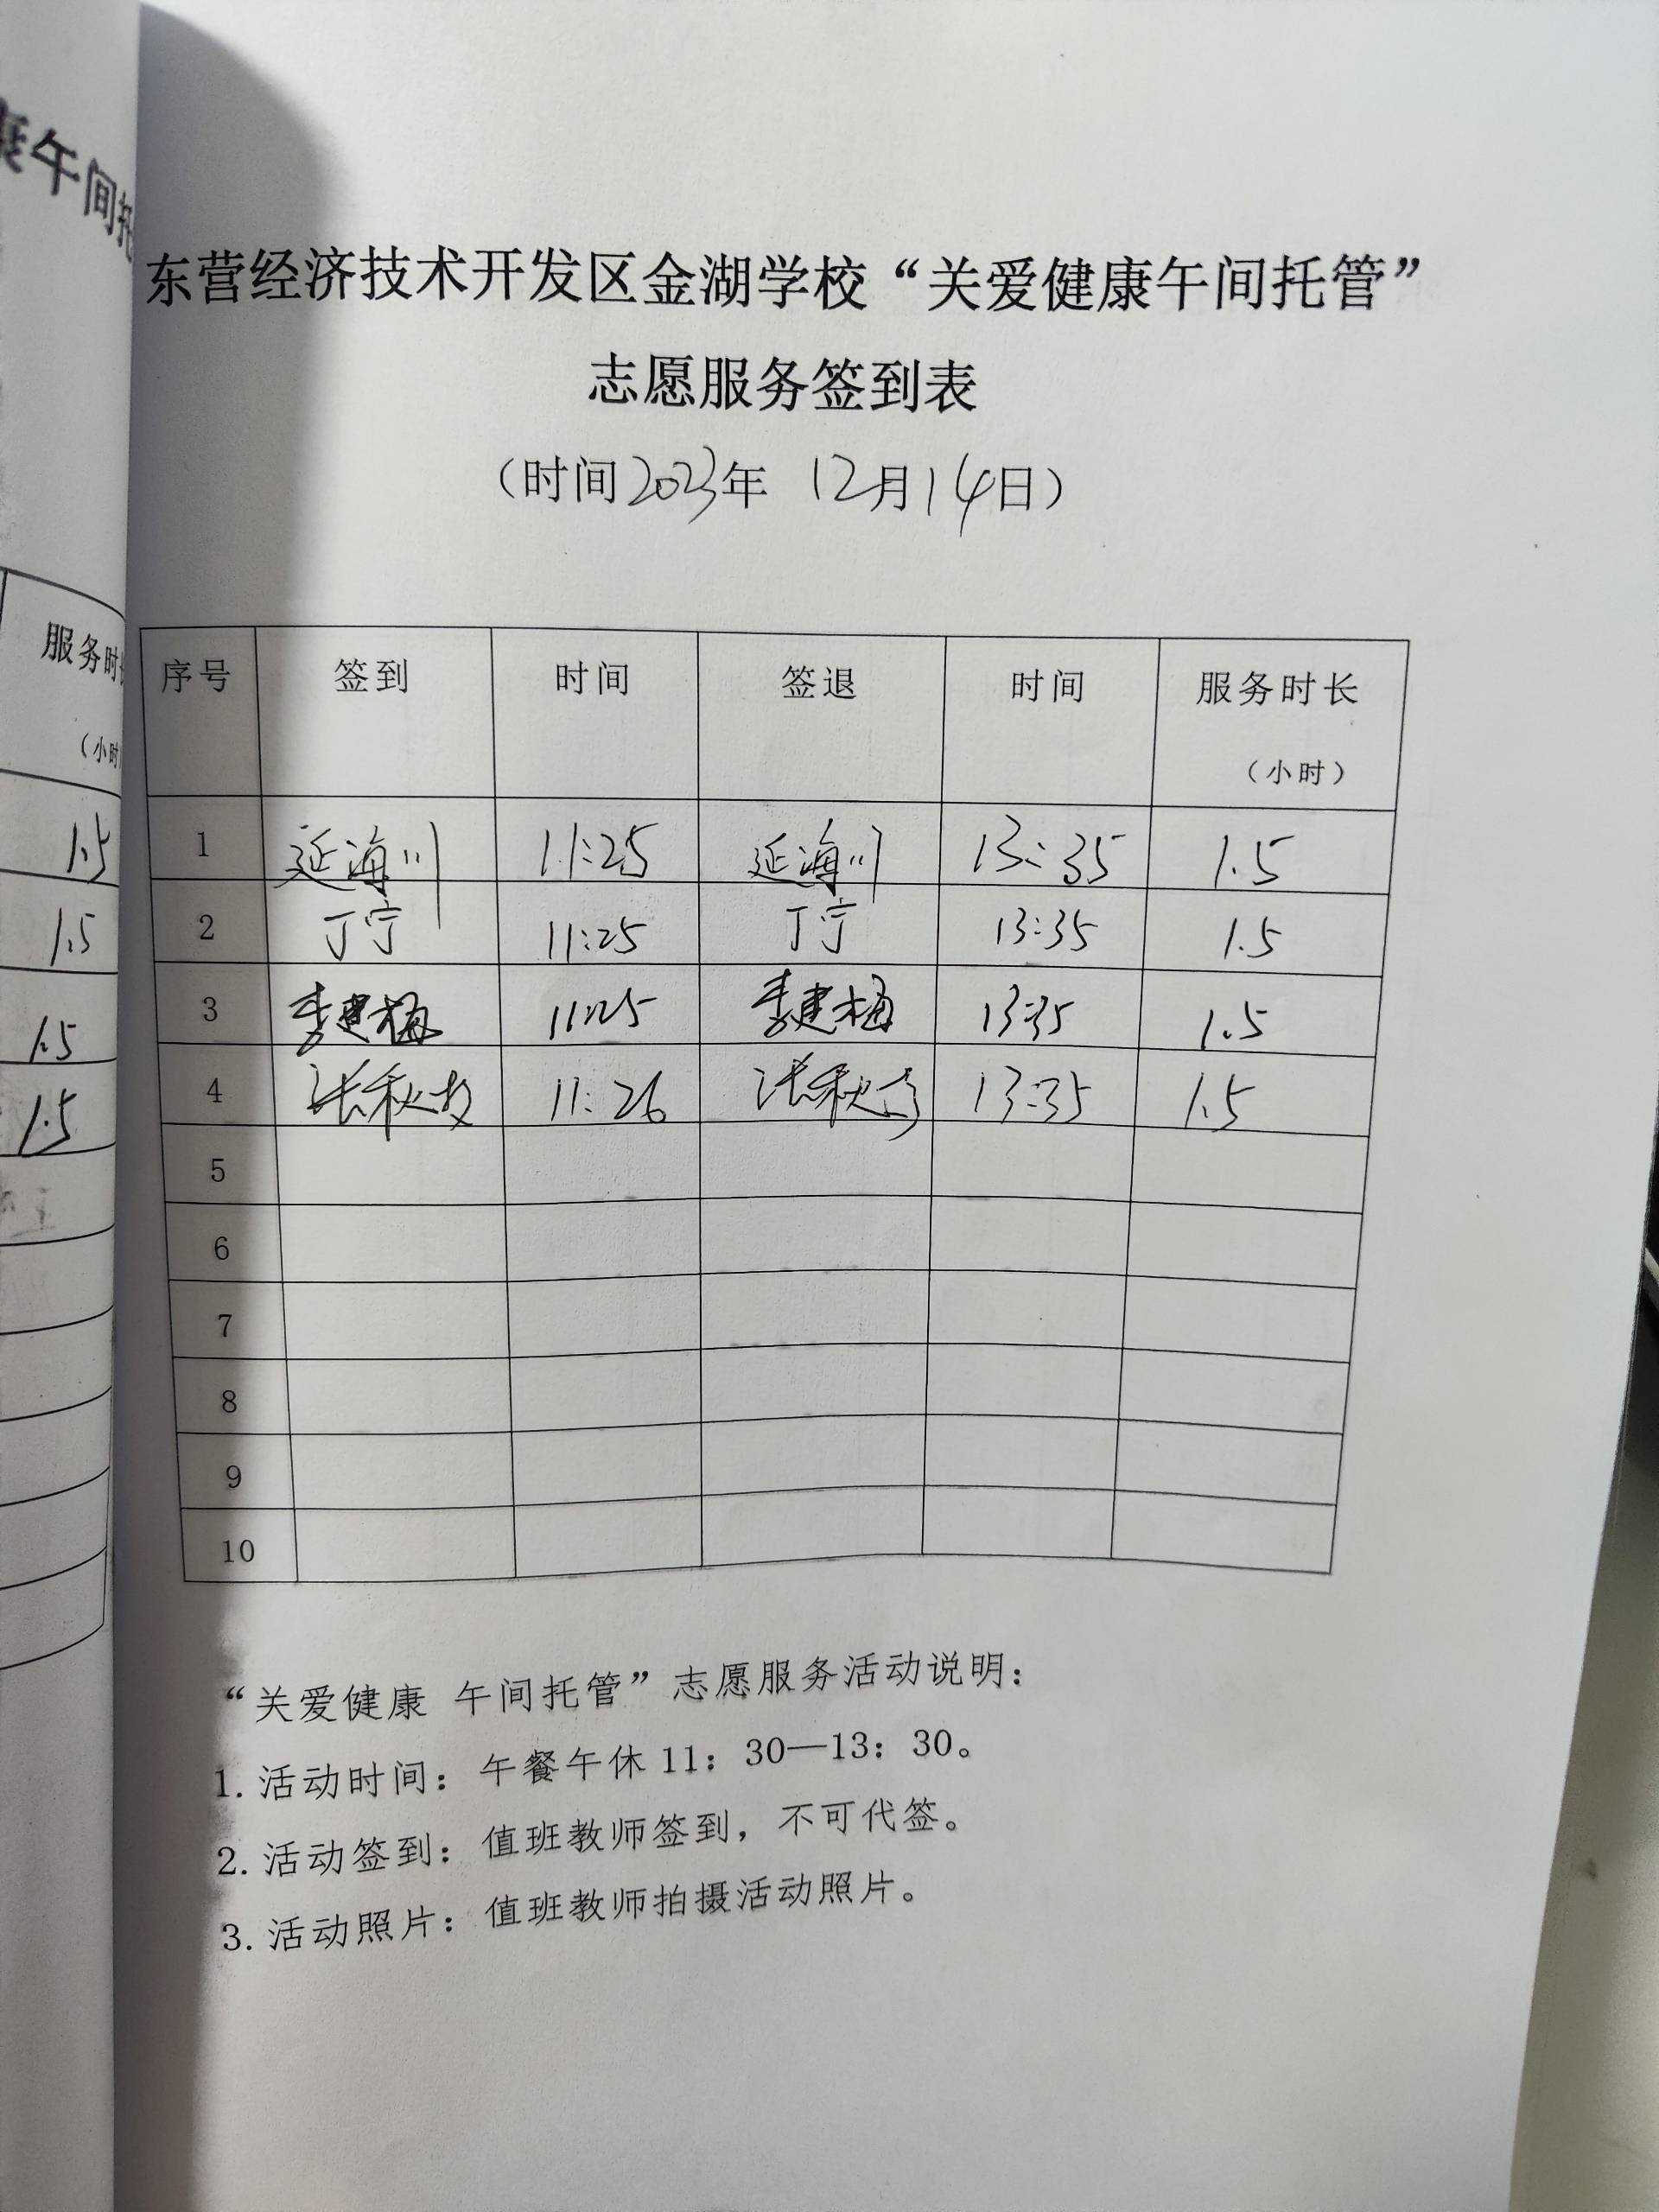 康午间托
服务时
（小时
1.5
1.5
1.5
1.5
东营经济技术开发区金湖学校“关爱健康午间托管”
志愿服务签到表
（时间2023年 12月14日）
序号 签到 时间 签退 时间 服务时长
（小时）
1 延海川 11:25 延海川 13:35 1.5
2 丁宁 11:25 丁宁 13:35 1.5
3 李建梅 11:25 李建梅 13:35 1.5
4 张秋 11:26 张秋 13:35 1.5
5
6
7
8
9
10
“关爱健康 午间托管”志愿服务活动说明：
1. 活动时间：午餐午休 11：30—13：30。
2. 活动签到：值班教师签到，不可代签。
3. 活动照片：值班教师拍摄活动照片。